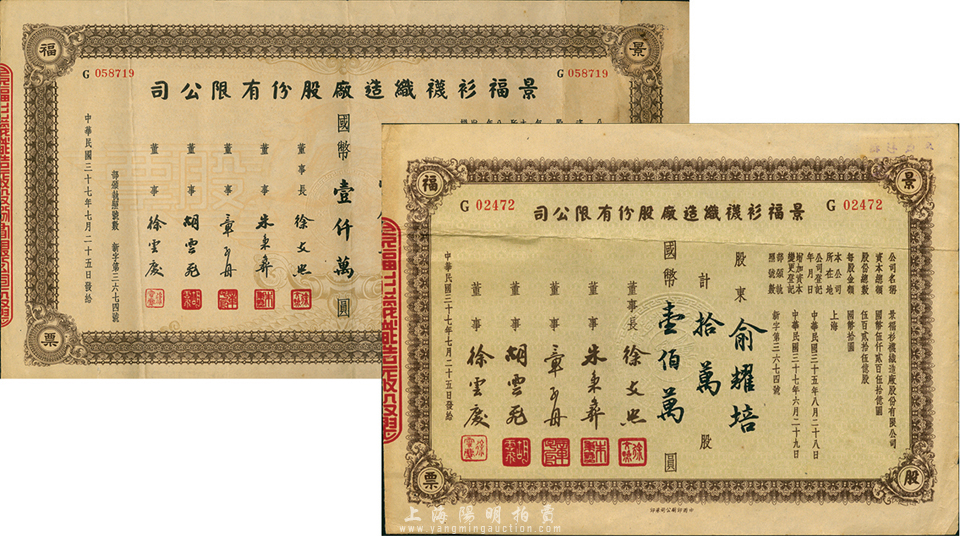 福 景
G 058719 G 058719
景福衫襪織造廠股份有限公司
國幣壹仟萬圓
董事長 徐文照
董事 朱東彝
董事
董事 胡雲飛
董事 徐雲慶
部頒執照號數 新字第三六七四號
中華民國三十七年七月二十五日發給
票
福 景
G 02472 G 02472
景福衫襪織造廠股份有限公司
公司名稱 景福衫襪織造廠股份有限公司
資本總額 國幣伍仟貳百伍拾億圓
股份總數 伍百貳拾伍億股
每股金額 國幣拾圓
本公司所在地 上海
公司登記年月日 中華民國三十五年八月二十八日
增加資本變更登記 中華民國三十七年六月二十九日
部頒號照號數 新字第三六七四號
股東 俞耀培
計拾萬股
國幣壹佰萬圓
董事長 徐文照
董事 朱東彝
董事
董事 胡雲飛
董事 徐雲慶
中華民國三十七年七月二十五日發給
票 股
上海陽明拍賣
www.yangmingauction.com